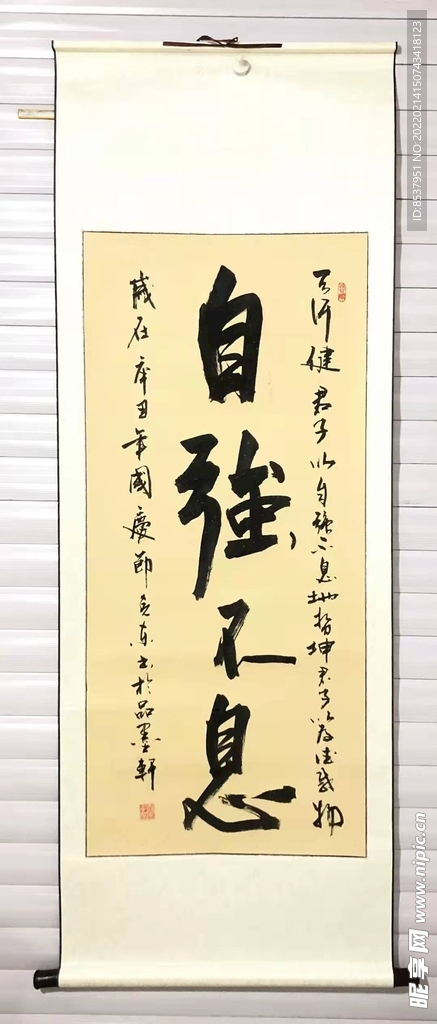 天行健君子以自强不息地势坤君子以厚德载物
自強不息
歲在辛丑年國慶節
书於品墨軒
ID:8537951 NO:20220214150743418123
昵享网 www.nipic.cn